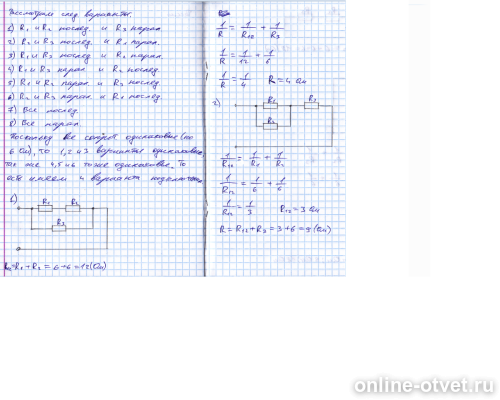 Рассмотрим след варианты.
1) R₁ и R₂ послед. и R₃ парал
2) R₂ и R₃ послед. и R₁ парал.
3) R₁ и R₃ послед и R₂ парал
4) R₁ и R₃ парал. и R₂ послед.
5) R₁ и R₂ парал. и R₃ послед
6) R₂ и R₃ парал и R₁ послед
7) Все послед.
8) Все парал.
Поскольку все сопрот одинаковые (по
6 Ом), то 1, 2 и 3 варианты одинаковые,
так же 4, 5 и 6 тоже одинаковые. То
есть имеем 4 варианта подключения
1)
R₁ R₂
R₃
R₁₂=R₁+R₂ = 6+6=12(Ом)
1/R = 1/R₁₂ + 1/R₃
1/R = 1/12 + 1/6
1/R = 1/4 R=4 Ом
2)
R₁ R₃
R₂
1/R₁₂ = 1/R₁ + 1/R₂
1/R₁₂ = 1/6 + 1/6
1/R₁₂ = 1/3 R₁₂=3 Ом
R=R₁₂+R₃ = 3+6=9(Ом)
online-otvet.ru